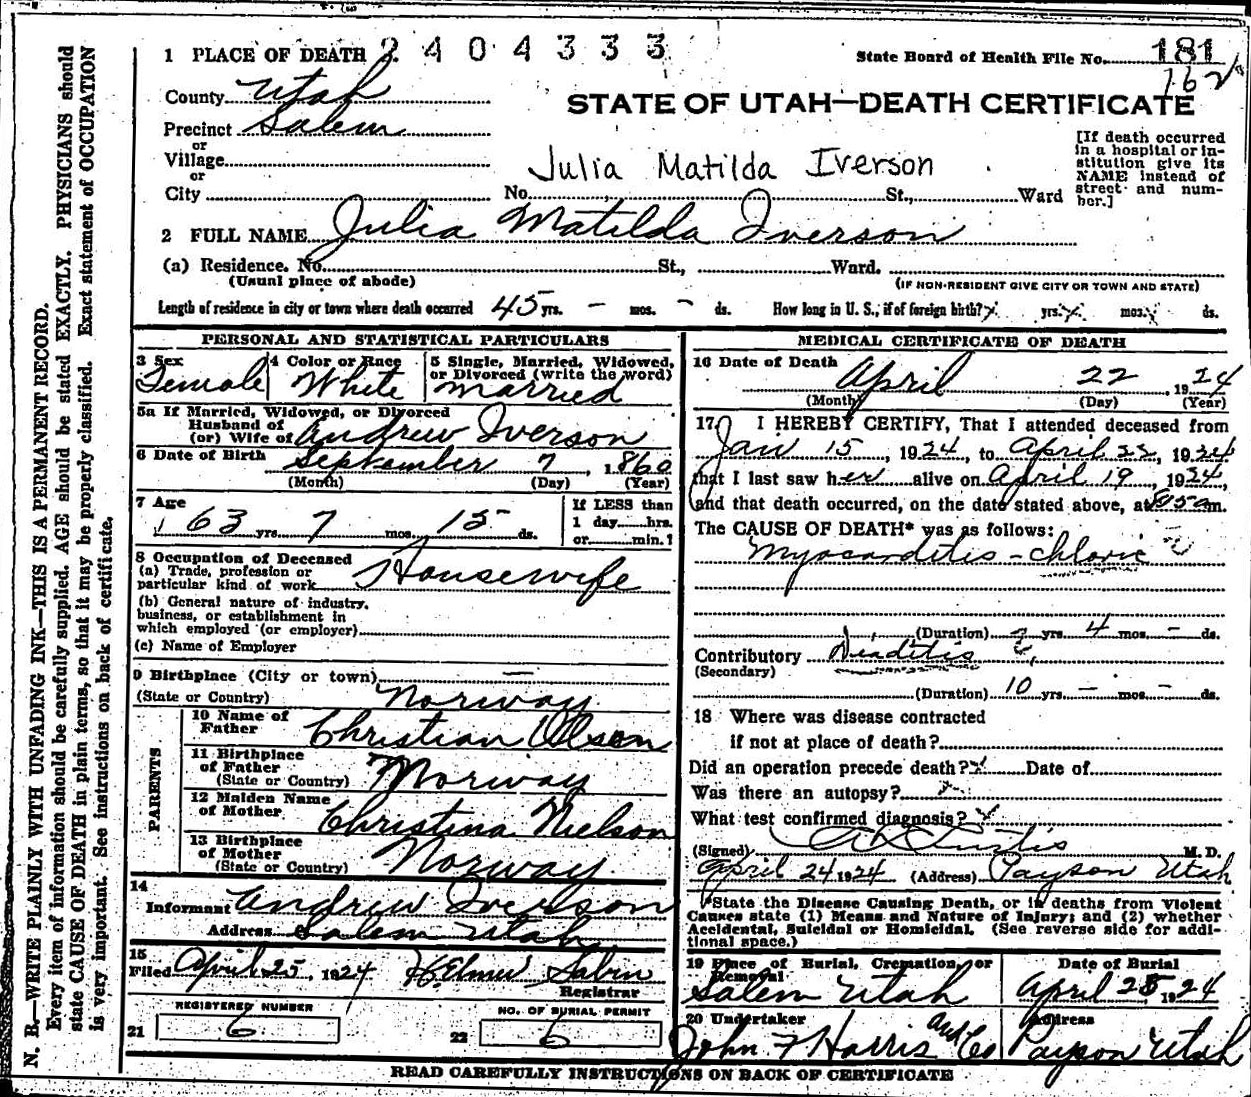 1 PLACE OF DEATH 2404333
State Board of Health File No. 181
162
County Utah
STATE OF UTAH—DEATH CERTIFICATE
Precinct Salem
or
Village
or
City
Julia Matilda Iverson
No. St., Ward
[If death occurred
in a hospital or in-
stitution give its
NAME instead of
street and num-
ber.]
2 FULL NAME Julia Matilda Iverson
(a) Residence. No. St., Ward.
(Usual place of abode) (IF NON-RESIDENT GIVE CITY OR TOWN AND STATE)
Length of residence in city or town where death occurred 45 yrs. - mos. - ds. How long in U. S., if of foreign birth? x yrs. x mos. x ds.
PERSONAL AND STATISTICAL PARTICULARS
3 Sex
Female
4 Color or Race
White
5 Single, Married, Widowed,
or Divorced (write the word)
married
5a If Married, Widowed, or Divorced
Husband of
(or) Wife of Andrew Iverson
6 Date of Birth September 7, 1860
(Month) (Day) (Year)
7 Age
63 yrs. 7 mos. 15 ds.
If LESS than
1 day hrs.
or min.?
8 Occupation of Deceased
(a) Trade, profession or
particular kind of work Housewife
(b) General nature of industry,
business, or establishment in
which employed (or employer)
(c) Name of Employer
9 Birthplace (City or town) —
(State or Country) Norway
PARENTS
10 Name of
Father Christian Olsen
11 Birthplace
of Father
(State or Country) Norway
12 Maiden Name
of Mother Christina Nielson
13 Birthplace
of Mother
(State or Country) Norway
14
Informant Andrew Iverson
Address Salem Utah
15
Filed April 25, 1924 H. Elmer Sabin
Registrar
REGISTERED NUMBER
21 6
NO. OF BURIAL PERMIT
22 6
MEDICAL CERTIFICATE OF DEATH
16 Date of Death April 22, 1924
(Month) (Day) (Year)
17 I HEREBY CERTIFY, That I attended deceased from
Jan 15, 1924, to April 22, 1924
that I last saw her alive on April 19, 1924,
and that death occurred, on the date stated above, at m.
The CAUSE OF DEATH* was as follows:
Myocarditis -
(Duration) yrs. 4 mos. - ds.
Contributory
(Secondary)
(Duration) 10 yrs. - mos. - ds.
18 Where was disease contracted
if not at place of death?
Did an operation precede death? x Date of
Was there an autopsy? x
What test confirmed diagnosis? x
(Signed) Curtis M. D.
April 24 1924 (Address) Payson Utah
*State the Disease Causing Death, or in deaths from Violent
Causes state (1) Means and Nature of Injury; and (2) whether
Accidental, Suicidal or Homicidal. (See reverse side for addi-
tional space.)
19 Place of Burial, Cremation, or
Removal
Salem Utah
Date of Burial
April 25 1924
20 Undertaker
John F Harris and Co
Address
Payson Utah
READ CAREFULLY INSTRUCTIONS ON BACK OF CERTIFICATE
N. B.—WRITE PLAINLY WITH UNFADING INK—THIS IS A PERMANENT RECORD.
Every item of information should be carefully supplied. AGE should be stated EXACTLY. PHYSICIANS should
state CAUSE OF DEATH in plain terms, so that it may be properly classified. Exact statement of OCCUPATION
is very important. See instructions on back of certificate.